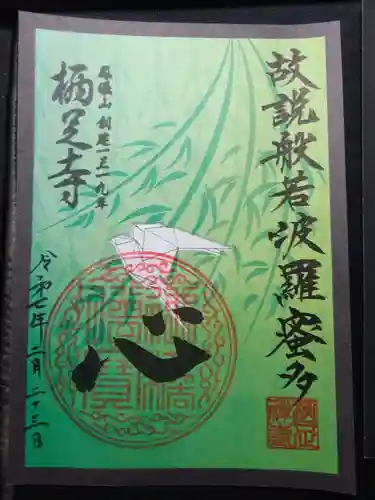 故説般若波羅蜜多
心
創建一三一九年
栖足寺
令和七年二月二十三日